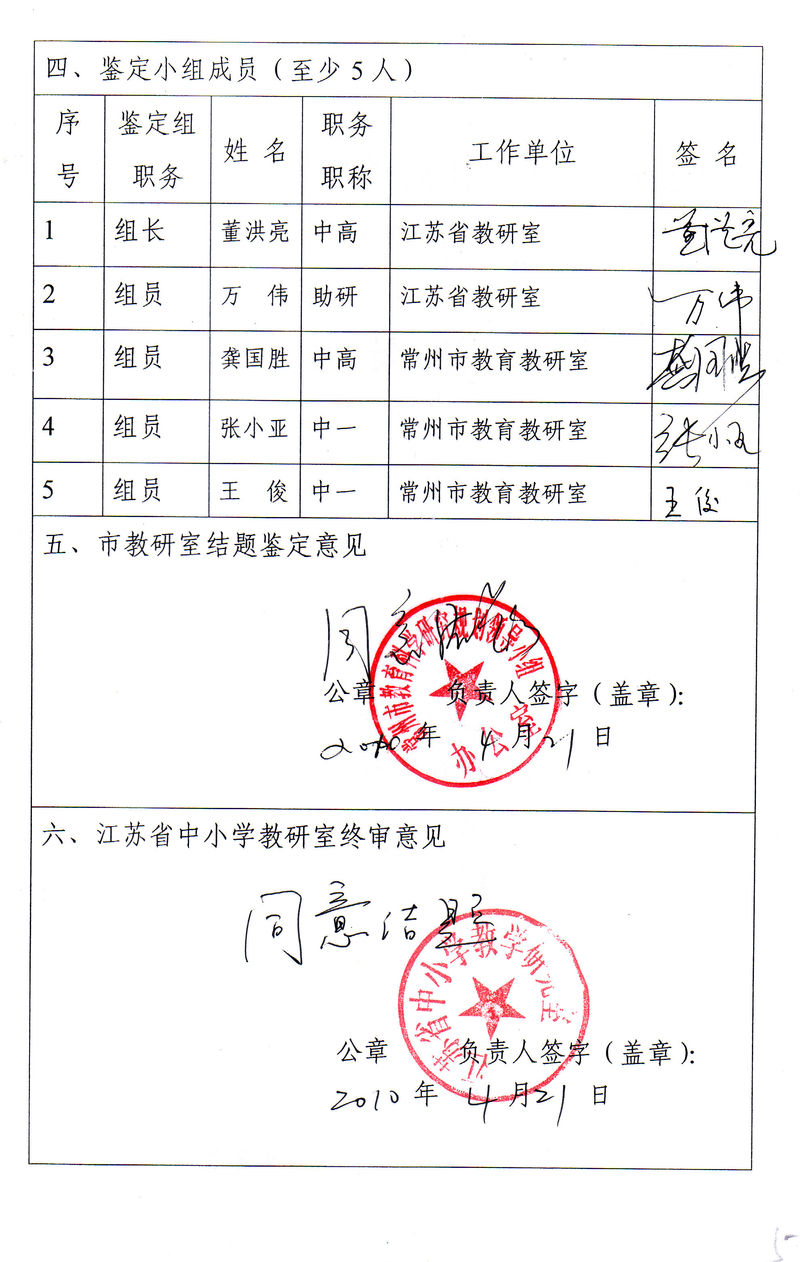 四、鉴定小组成员（至少5人）
序号 鉴定组职务 姓 名 职务职称 工作单位 签 名
1 组长 董洪亮 中高 江苏省教研室 董洪亮
2 组员 万 伟 助研 江苏省教研室 万伟
3 组员 龚国胜 中高 常州市教育教研室 龚国胜
4 组员 张小亚 中一 常州市教育教研室 张小亚
5 组员 王 俊 中一 常州市教育教研室 王俊
五、市教研室结题鉴定意见
同意结题
常州市教育科学研究规划领导小组
办公室
公章 负责人签字（盖章）：
2010年 4月21日
六、江苏省中小学教研室终审意见
同意结题
江苏省中小学教学研究室
公章 负责人签字（盖章）：
2010年 4月21日
5